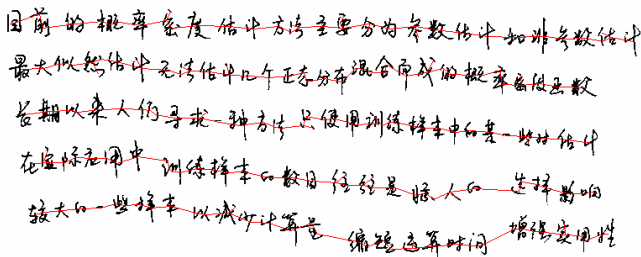 目前的概率密度估计方法主要分为参数估计和非参数估计
最大似然估计无法估计几个正态分布混合而成的概率密度函数
长期以来人们寻求一种方法只使用训练样本中的某一些对估计
在实际应用中训练样本的数目往往是惊人的选择影响
较大的一些样本以减少计算量缩短运算时间增强实用性